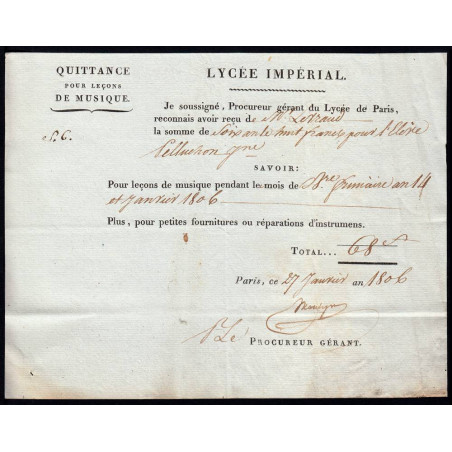 QUITTANCE
POUR LEÇONS
DE MUSIQUE.
LYCÉE IMPÉRIAL.
Je soussigné, Procureur gérant du Lycée de Paris,
reconnais avoir reçu de Mr
la somme de Soixante huit francs pour l'Elève
Pelluchon jne
SAVOIR:
Pour leçons de musique pendant les mois de frimaire an 14
et Janvier 1806
Plus, pour petites fournitures ou réparations d'instrumens.
TOTAL... 68 f
Paris, ce 27 Janvier an 1806
PROCUREUR GÉRANT.